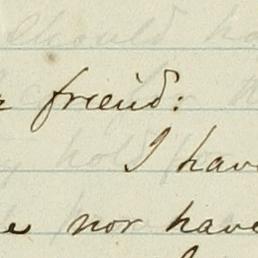 friend:
I have
nor have